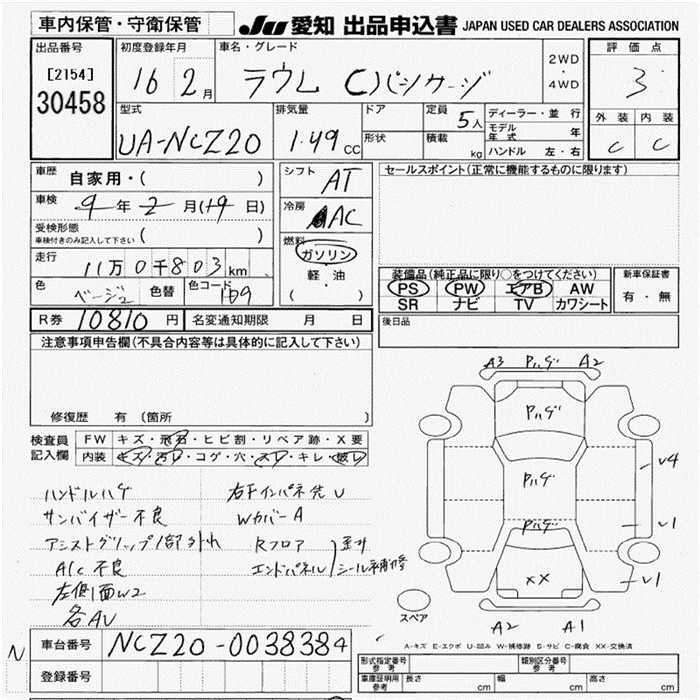 車内保管・守衛保管
JU 愛知 出品申込書 JAPAN USED CAR DEALERS ASSOCIATION
出品番号
[2154]
30458
初度登録年月
16 2月
車名・グレード
ラウム Cパッケージ
2WD
・
4WD
評価点
3
外装 内装
C C
型式
UA-NCZ20
排気量
1.49CC
ドア
形状
定員 5人
積載 kg
ディーラー・並行
モデル年式 年
ハンドル 左・右
車歴 自家用・( )
車検 9年2月(19日)
受検形態
車検付きのみ記入して下さい ( )
走行 11万0千803km
色 ベージュ 色替 色コード 1B9
シフト AT
冷房 AC
燃料 ガソリン
軽・油
( )
セールスポイント(正常に機能するものに限ります)
装備品(純正品に限り○をつけてください)
PS PW エアB AW
SR ナビ TV カワシート
新車保証書
有・無
R券 10810円 名変通知期限 月 日
後日品
注意事項申告欄(不具合内容等は具体的に記入して下さい)
修復歴 有(箇所 )
検査員記入欄
FW キズ・飛石・ヒビ割・リペア跡・X要
内装 キズ・汚レ・コゲ・穴・スレ・キレ・破レ
ハンドルハゲ
サンバイザー不良
アシストグリップ1部外れ
A/C不良
左側1面W2
各AU
右Fインパネ先U
WカバーA
Rフロア
エンドパネル
歪み
シール補修
A3 Pハゲ A2
Pハゲ
Pハゲ
Pハゲ
XX
V4
V1
V1
A2 A1
スペア
A-キズ E-エクボ U-凹み W-補修跡 S-サビ C-腐食 XX-交換済
N
車台番号 NCZ20-0038384
登録番号
形式指定番号 参考
類別区分番号 参考
車庫証明用 参考 長さ cm 幅 cm 高さ cm